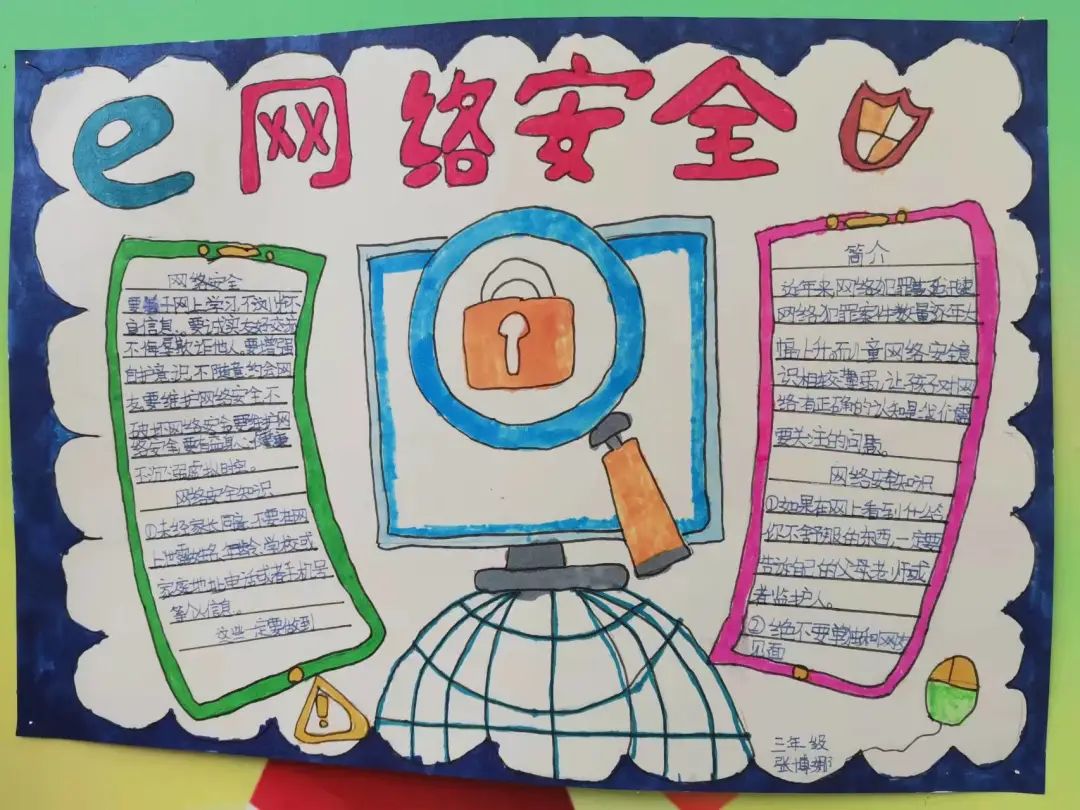 e 网络安全
网络安全
要善于网上学习,不浏览不
良信息。要诚实友好交流
不侮辱欺诈他人,要增强
自护意识,不随意约会网
友,要维护网络安全,不
破坏网络安全要维护网
络安全,要有益身心健康
不沉溺虚拟时空。
网络安全知识
①未经家长同意,不要在网
上泄露姓名、年龄、学校或
家庭地址电话或者手机号
等个人信息。
这些一定要做到
简介
近年来,网络犯罪蔓延迅速
网络犯罪案件数量逐年大
幅上升。而儿童网络安全意
识相较薄弱,让孩子对网
络有正确的认知是我们需
要关注的问题。
网络安全知识
①如果在网上看到什么令
你不舒服的东西,一定要
告诉自己的父母老师或
者监护人。
②绝不要单独和网友
见面
三年级
张博娜